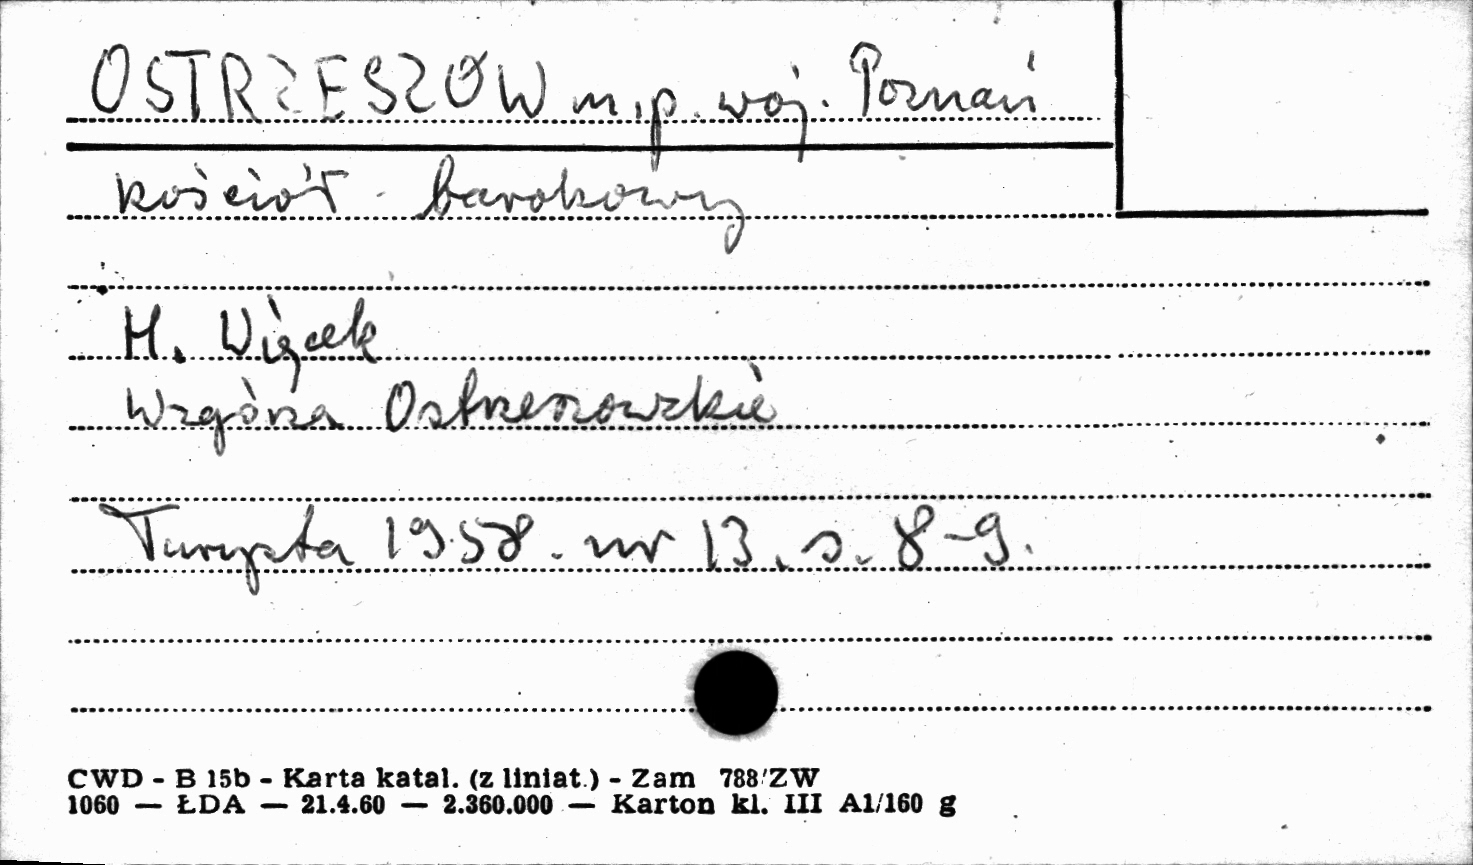 OSTRZESZÓW m.p. woj. Poznań
kościół - barokowy
H. Więcek
Wzgórza Ostrzeszowskie
Turysta 1958. nr 13. s. 8-9.
CWD - B 15b - Karta katal. (z liniat.) - Zam 788/ZW
1060 — ŁDA — 21.4.60 — 2.360.000 — Karton kl. III A1/160 g